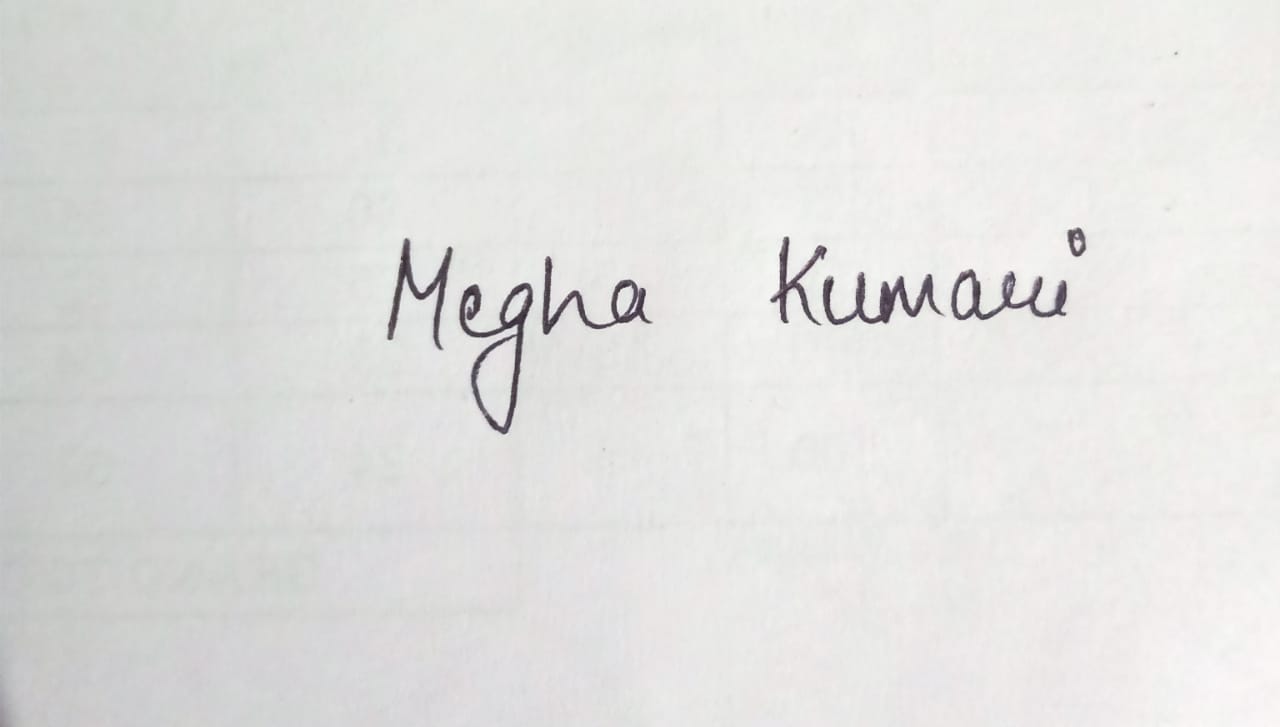 Megha Kumari